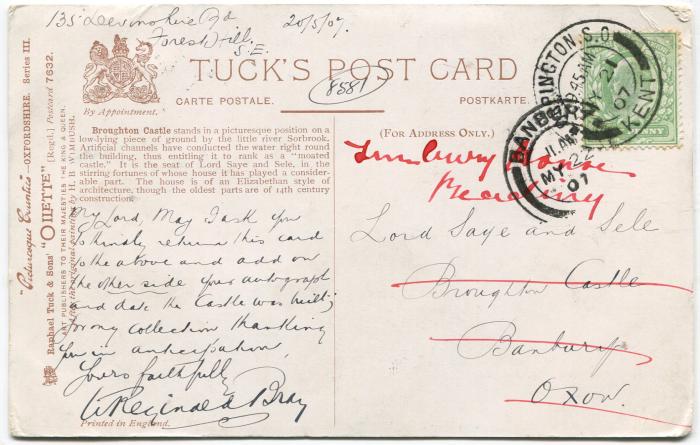 135 Devonshire Rd
Forest Hill.
S.E.
20/5/07.
By Appointment.
TUCK'S POST CARD
CARTE POSTALE.
8581
POSTKARTE.
(FOR ADDRESS ONLY.)
Broughton Castle stands in a picturesque position on a
low-lying piece of ground by the little river Sorbrook.
Artificial channels have conducted the water right
round the building, thus entitling it to rank as a "moated
castle." It is the seat of Lord Saye and Sele, in the
stirring fortunes of whose house it has played a consider-
able part. The house is of an Elizabethan style of
architecture, though the oldest parts are of 14th century
construction.
My Lord, May I ask you
to kindly return this card
to the above and add on
the other side your autograph
and date the Castle was built,
for my collection thanking
you in anticipation,
Yours faithfully
W Reginald Bray
Printed in England.
"Picturesque Counties"—OXFORDSHIRE. Series III.
Raphael Tuck & Sons' "OILETTE" (Regd.) Postcard 7632.
ART PUBLISHERS TO THEIR MAJESTIES THE KING & QUEEN.
After the original painting by H. B. WIMBUSH.
House
Reading
Lord Saye and Sele
Broughton Castle
Banbury
Oxon.
INGTON.S.O
KENT
9.45 AM
21
07
BANBURY
11. AM
MY 22
07
PENNY